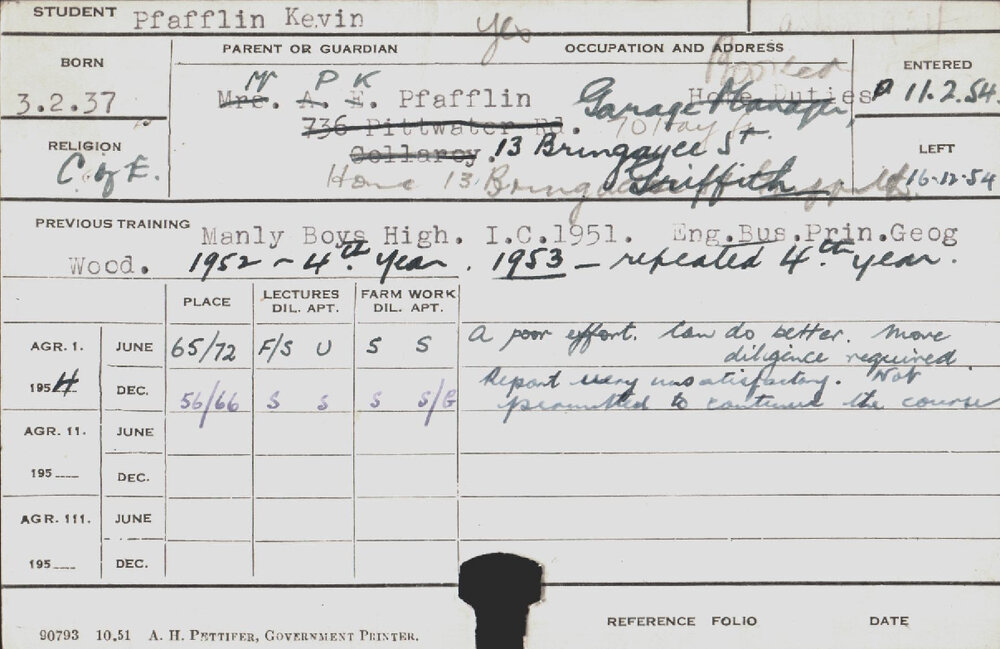 STUDENT Pfafflin Kevin Yes
BORN PARENT OR GUARDIAN OCCUPATION AND ADDRESS ENTERED
3.2.37 Mr P K
Mrs. A. E. Pfafflin Home Duties Garage Manager, 11.2.54
736 Pittwater Rd.
RELIGION Collaroy. 13 Bringagee St. LEFT
C of E. Home 13 Griffith 16.12.54
PREVIOUS TRAINING Manly Boys High. I.C.1951. Eng.Bus.Prin.Geog
Wood. 1952 - 4th year. 1953 - repeated 4th year.
PLACE LECTURES DIL. APT. FARM WORK DIL. APT.
AGR. 1. JUNE 65/72 F/S U S S A poor effort. Can do better. More
diligence required.
1954 DEC. 56/66 S S S S/G Report very unsatisfactory. Not
permitted to continue the course
AGR. 11. JUNE
195 DEC.
AGR. 111. JUNE
195 DEC.
REFERENCE FOLIO DATE
90793 10.51 A. H. PETTIFER, GOVERNMENT PRINTER.